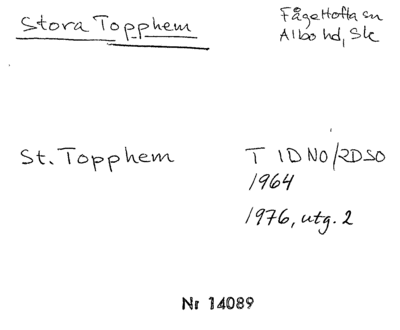 Stora Topphem
Fågeltofta sn
Albo hd, Sk
St. Topphem
T 1D NO/2D SO
1964
1976, utg. 2
Nr 14089